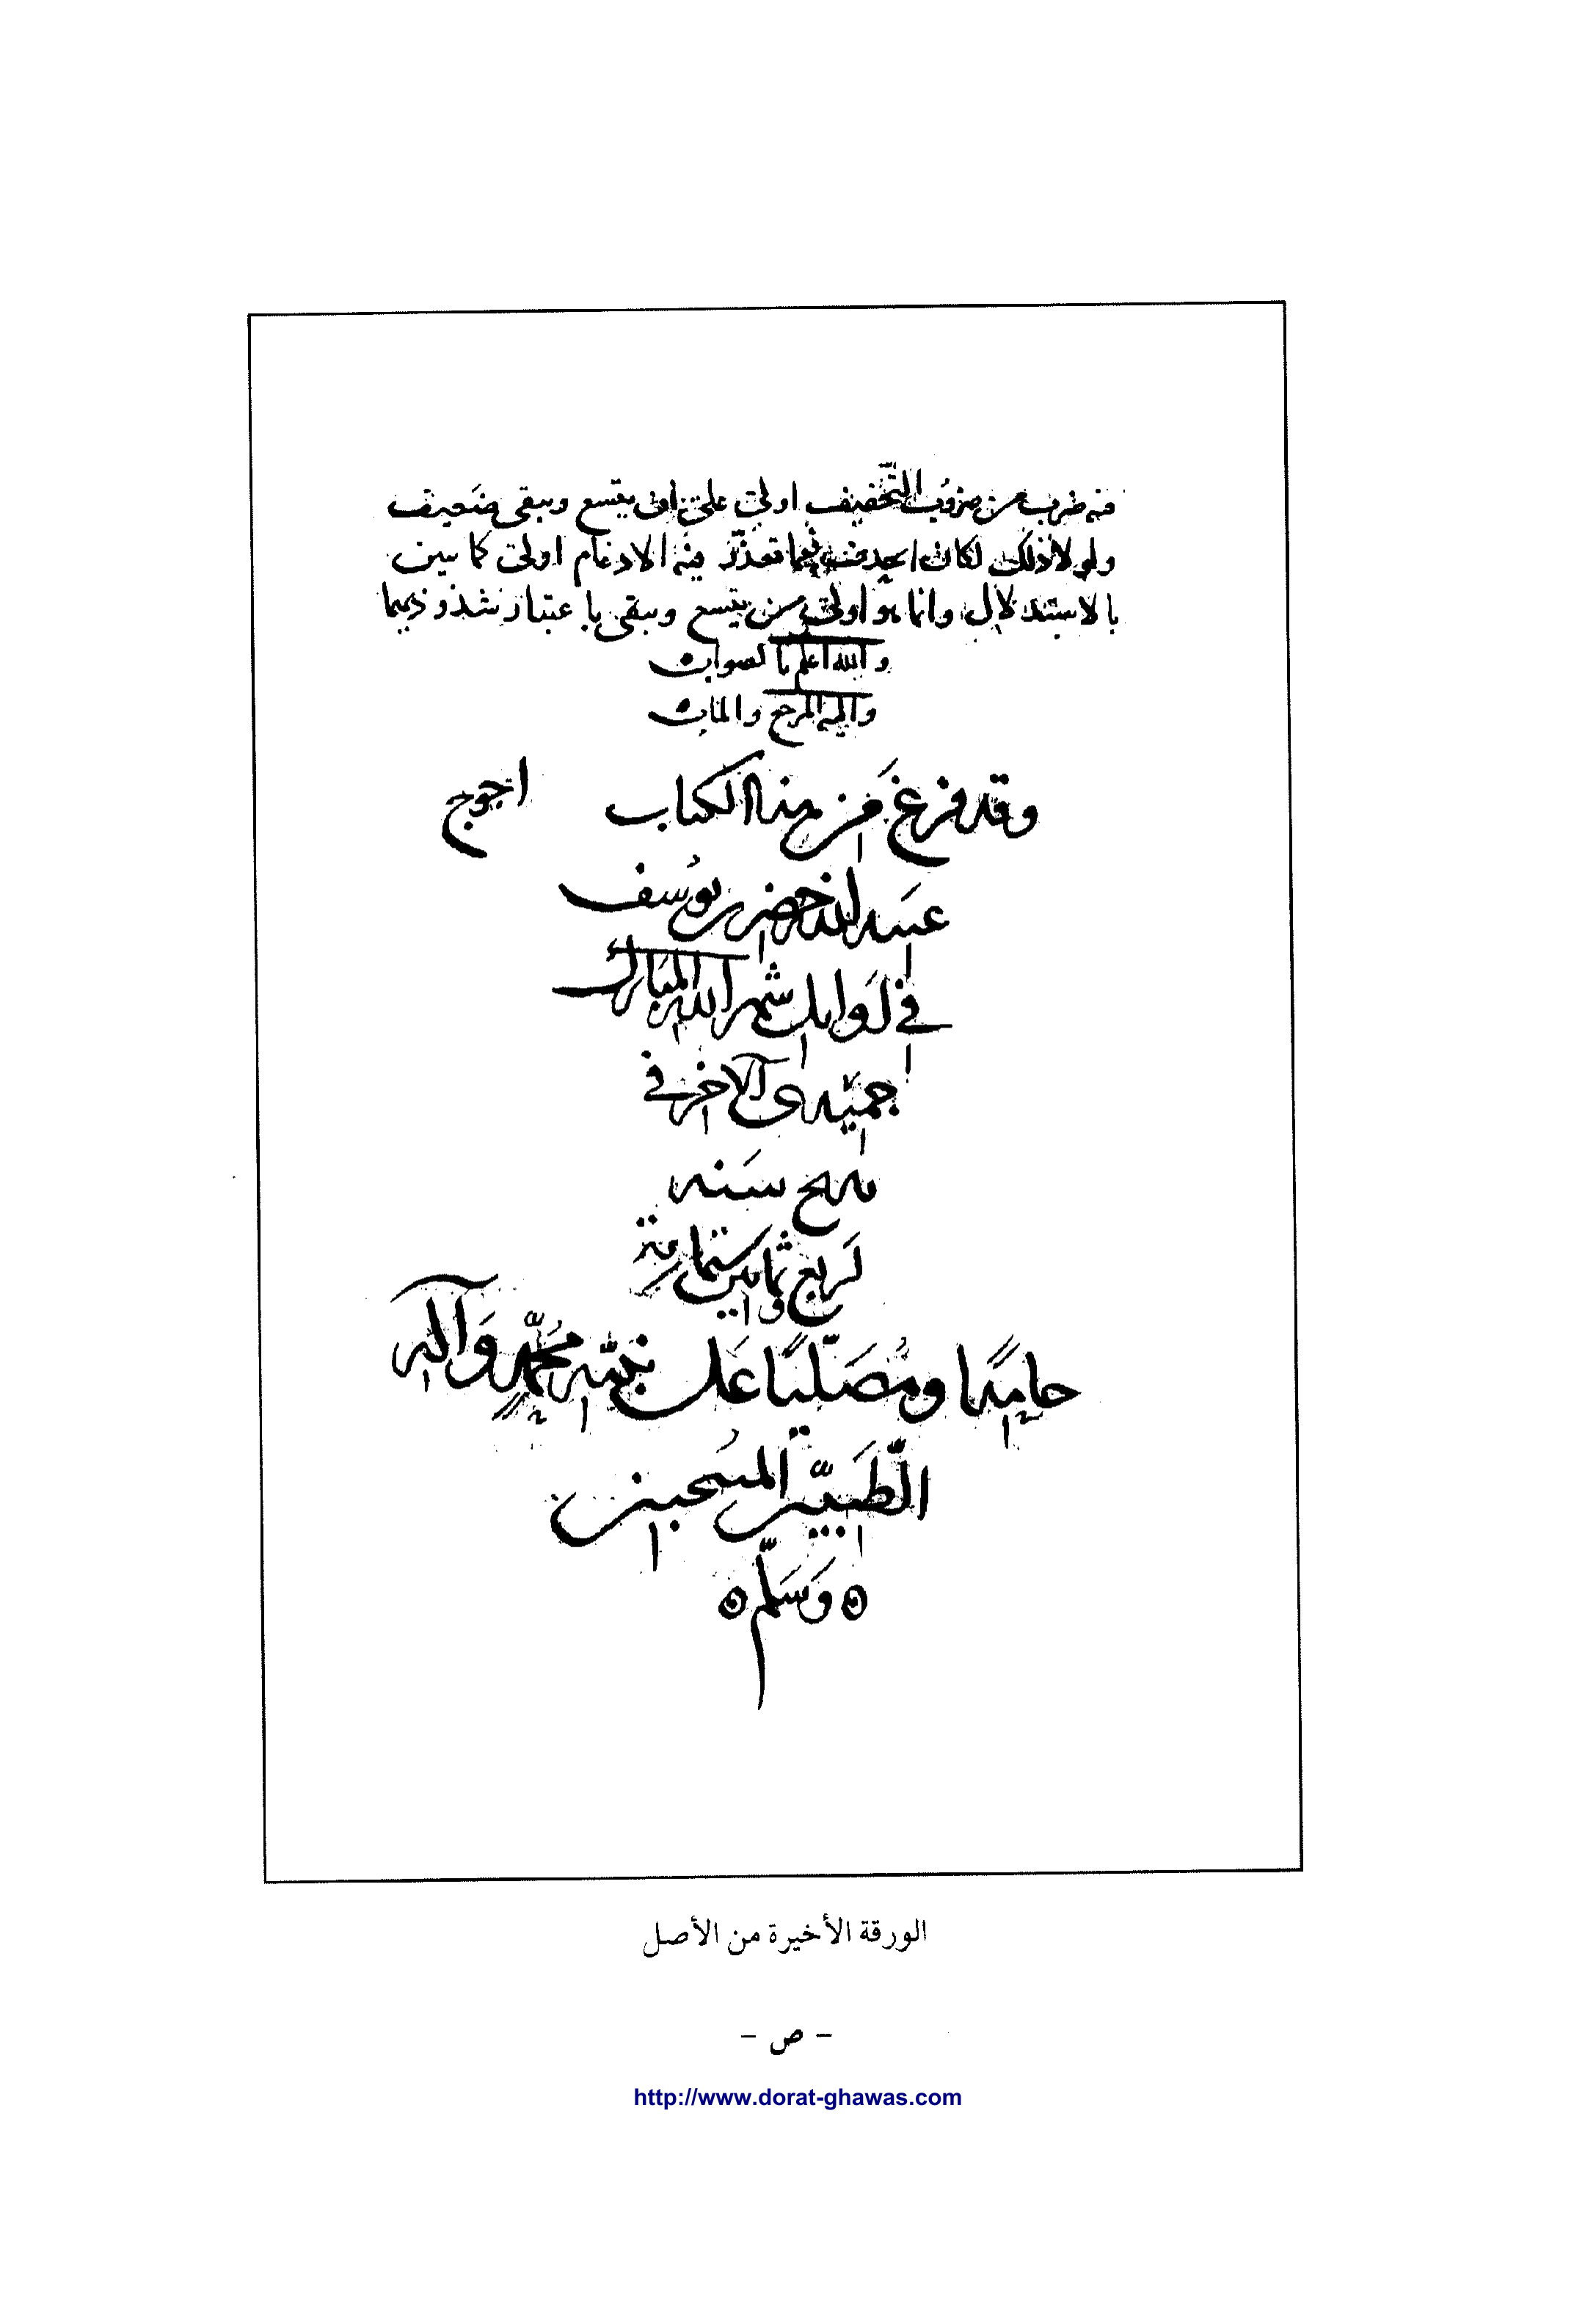 فيه ضرب من ضروب التّخفيف اولى على ان يتسع ويبقى ضعيف
ولولا ذلك لكان الحذف فيما تعذّر فيه الادغام اولى كما سبق
بالاستدلال وانما هو اولى من يتسع ويبقى باعتبار شذوذهما
والله اعلم بالصواب
واليه المرجع والماب
وقد فرغ من هذا الكتاب احوج
عبيد الله خضر بن يوسف
في اوايل شهر الله المبارك
جميدى الآخر في
سنه
اربع ثمانين ستماية
حامدًا ومُصَلّيًا عَلى نبيّه محمّدٍ وَآله
الطَّيّبين المنتجبين
وَسَلّم
الورقة الأخيرة من الأصل
- ص -
http://www.dorat-ghawas.com